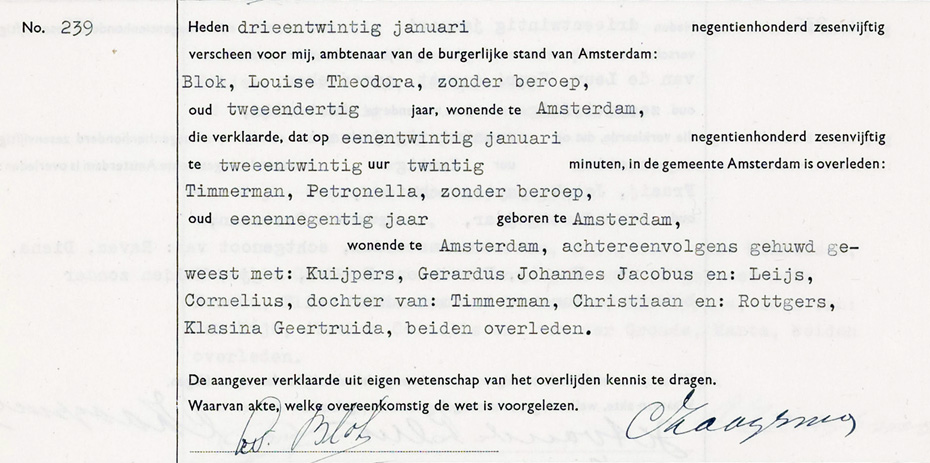 No. 239
Heden drieentwintig januari negentienhonderd zesenvijftig
verscheen voor mij, ambtenaar van de burgerlijke stand van Amsterdam:
Blok, Louise Theodora, zonder beroep,
oud tweeendertig jaar, wonende te Amsterdam,
die verklaarde, dat op eenentwintig januari negentienhonderd zesenvijftig
te tweeentwintig uur twintig minuten, in de gemeente Amsterdam is overleden:
Timmerman, Petronella, zonder beroep,
oud eenennegentig jaar geboren te Amsterdam,
wonende te Amsterdam, achtereenvolgens gehuwd ge-
weest met: Kuijpers, Gerardus Johannes Jacobus en: Leijs,
Cornelius, dochter van: Timmerman, Christiaan en: Rottgers,
Klasina Geertruida, beiden overleden.
De aangever verklaarde uit eigen wetenschap van het overlijden kennis te dragen.
Waarvan akte, welke overeenkomstig de wet is voorgelezen.
Blok